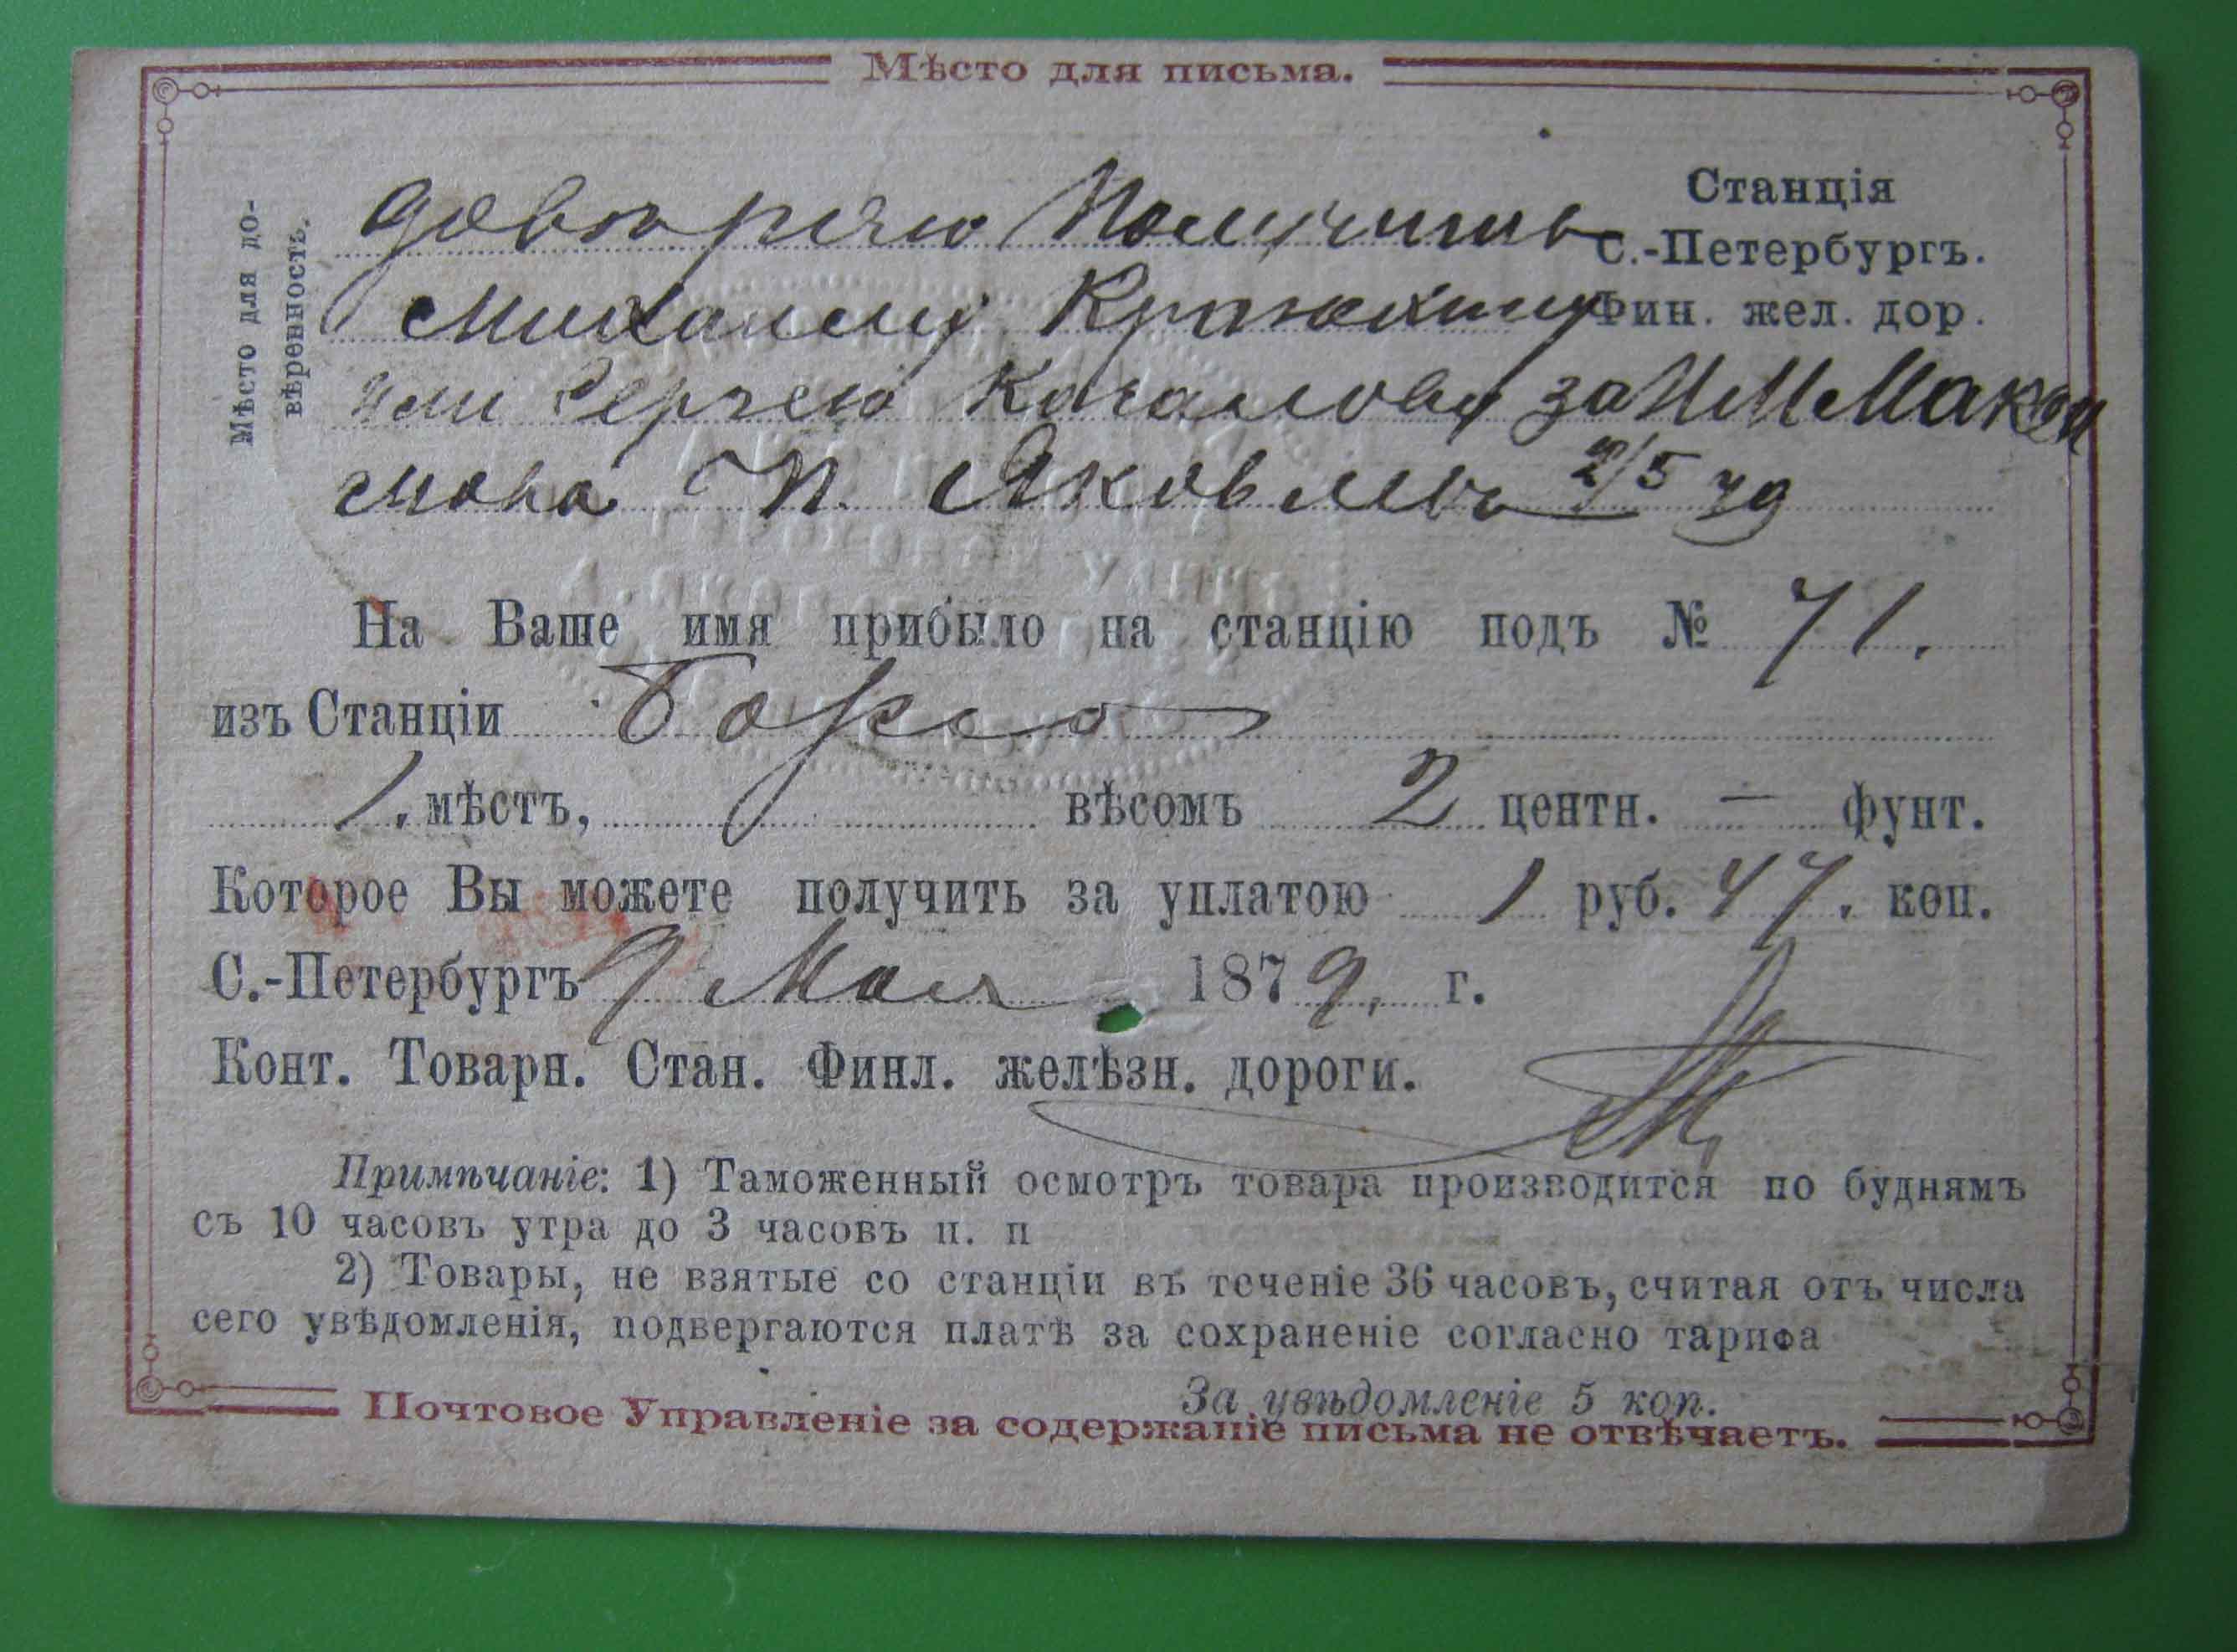 Мѣсто для письма.
Станція
С.-Петербургъ.
Фин. жел. дор.
Мѣсто для до-
вѣренность.
Довѣряю Получить
Михаилу
или Сергею Качалову за И М Макси
мова П. Яковлевъ 2/5 79
На Ваше имя прибыло на станцію подъ № 71.
изъ Станціи Борго
1. мѣстъ, вѣсомъ 2 центн. — фунт.
Которое Вы можете получить за уплатою 1 руб. 47. коп.
С.-Петербургъ 9 Мая 1879, г.
Конт. Товарн. Стан. Финл. желѣзн. дороги.
Примѣчаніе: 1) Таможенный осмотръ товара производится по буднямъ
съ 10 часовъ утра до 3 часовъ п. п
2) Товары, не взятые со станціи въ теченіе 36 часовъ, считая отъ числа
сего увѣдомленія, подвергаются платѣ за сохраненіе согласно тарифа
За увѣдомленіе 5 коп.
Почтовое Управленіе за содержаніе письма не отвѣчаетъ.